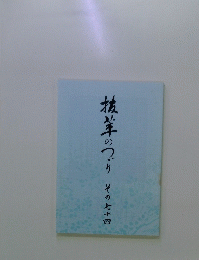 抜萃のつゞり その七十四